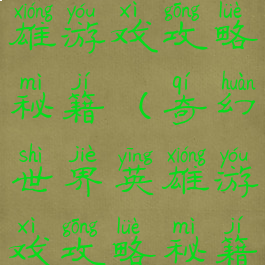 xióng yóu xì gōng lüè
雄游戏攻略
mì jí qí huàn
秘籍(奇幻
shì jiè yīng xióng yóu
世界英雄游
xì gōng lüè mì jí
戏攻略秘籍